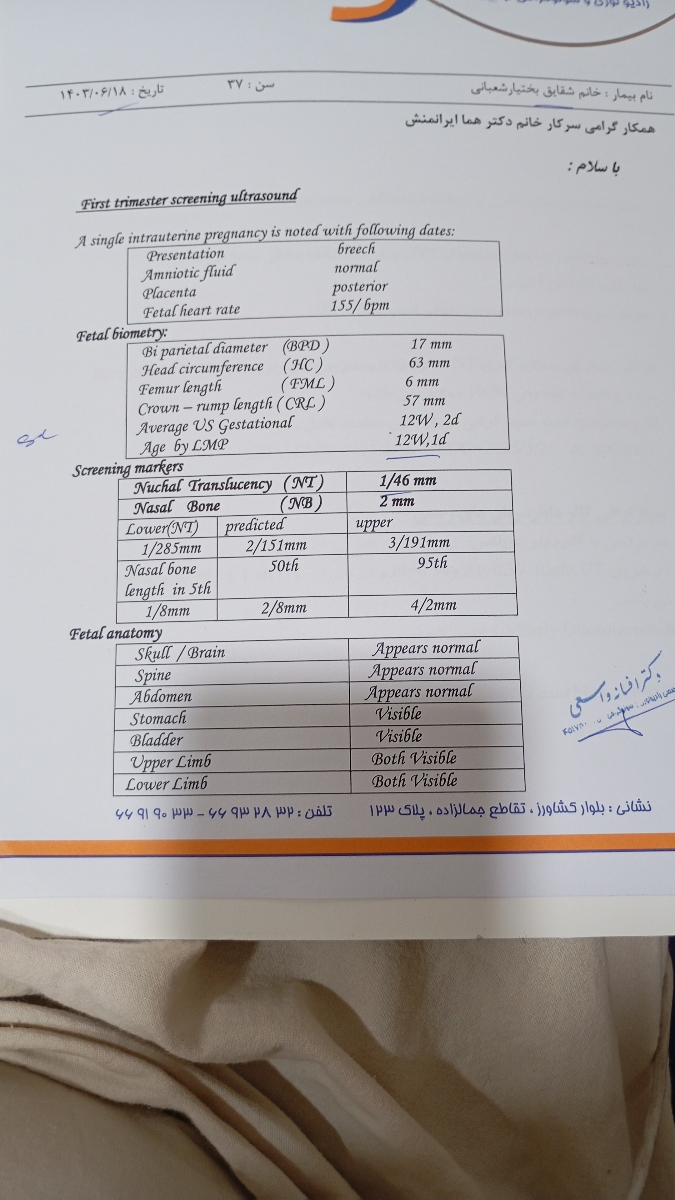 نام بیمار : خانم شقایق بختیارشعبانی سن : ۳۷ تاریخ : ۱۴۰۳/۰۶/۱۸
همکار گرامی سرکار خانم دکتر هما ایرانمنش
با سلام :
First trimester screening ultrasound
A single intrauterine pregnancy is noted with following dates:
Presentation breech
Amniotic fluid normal
Placenta posterior
Fetal heart rate 155/ bpm
Fetal biometry:
Bi parietal diameter (BPD ) 17 mm
Head circumference (HC) 63 mm
Femur length (FML ) 6 mm
Crown – rump length ( CRL ) 57 mm
Average US Gestational 12W , 2d
Age by LMP 12W,1d
Screening markers
Nuchal Translucency (NT) 1/46 mm
Nasal Bone (NB) 2 mm
Lower(NT) predicted upper
1/285mm 2/151mm 3/191mm
Nasal bone length in 5th 50th 95th
1/8mm 2/8mm 4/2mm
Fetal anatomy
Skull / Brain Appears normal
Spine Appears normal
Abdomen Appears normal
Stomach Visible
Bladder Visible
Upper Limb Both Visible
Lower Limb Both Visible
دکتر افسانه واسعی
نشانی : بلوار کشاورز ، تقاطع جمالزاده ، پلاک ۱۲۳ تلفن : ۳۲ ۲۸ ۹۳ ۶۶ – ۳۳ ۹۰ ۹۱ ۶۶